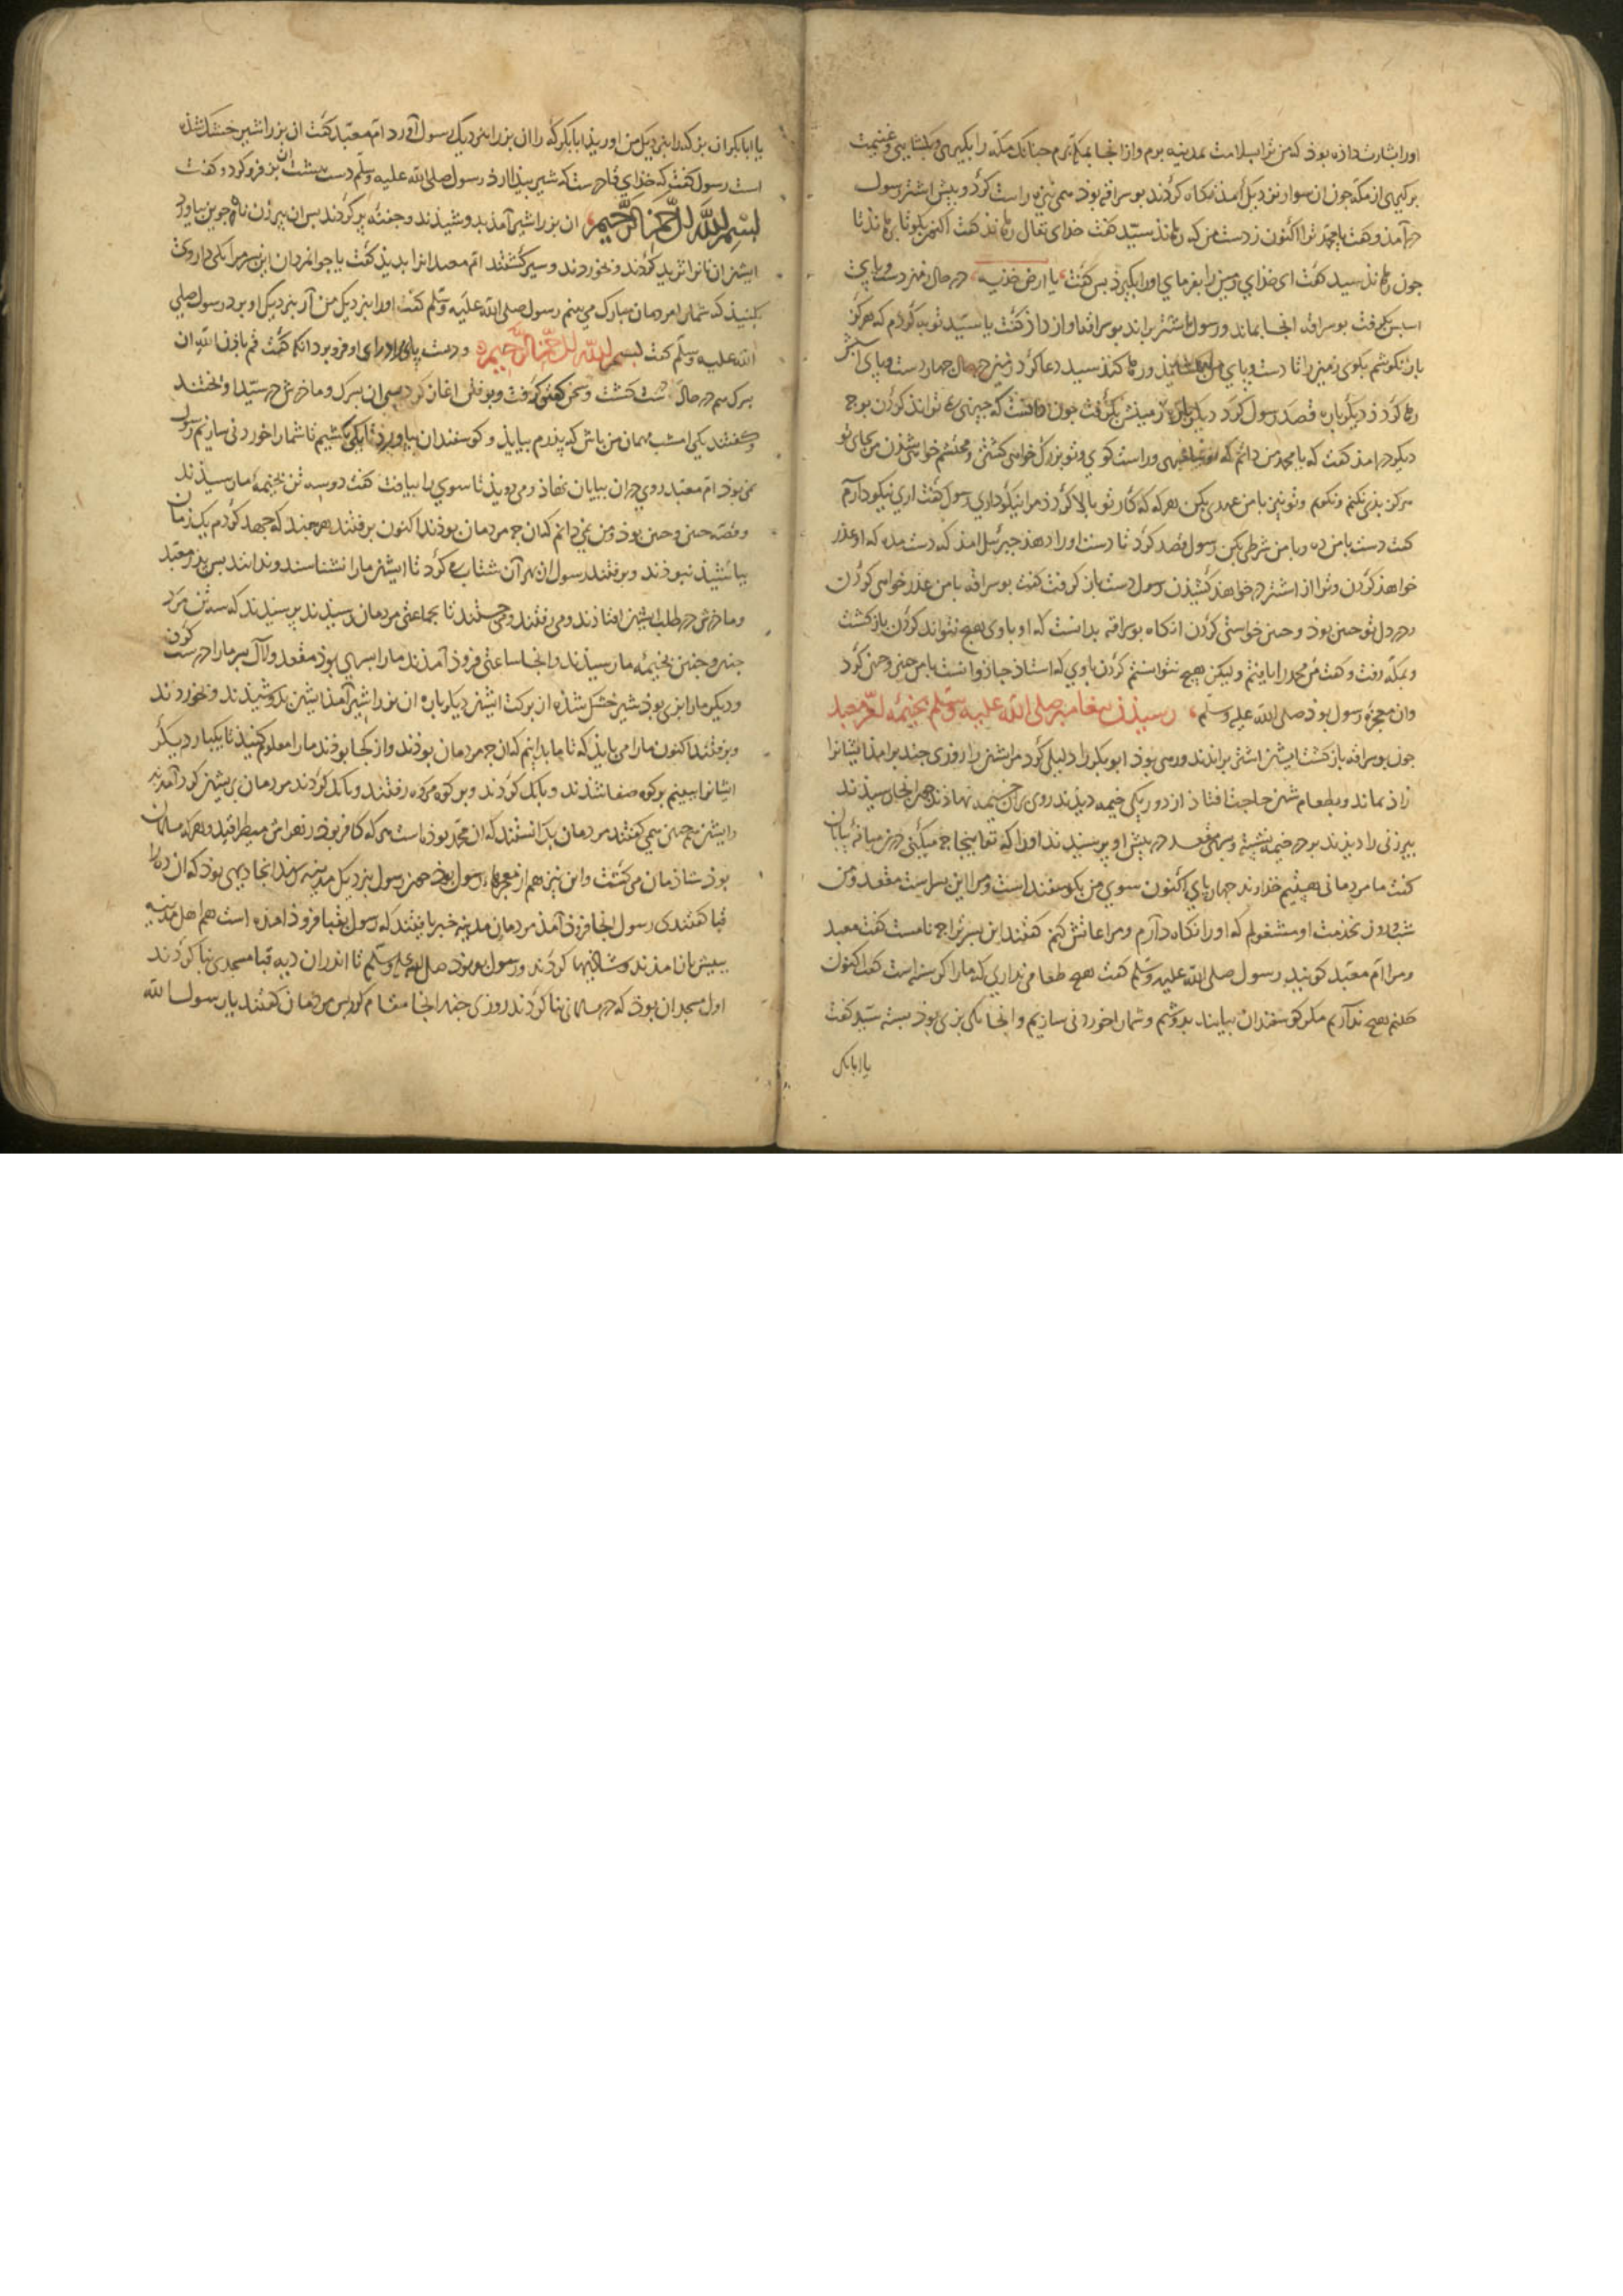 اورا بشارت داده بوذ که من ترا بسلامت بمدینه برم وازانجا بمکه برم جنانک مکه را بکیری وبکشایی وغنیمت
برکیری از مکه جون ان سوار نزدیک آمذ نکاه کردند بوسراقه بوذ همی نیزه راست کرد و پیش اشتر رسول
درآمذ وکفت یا محمد ترا اکنون زدست من که رهاند سید کفت خدای تعالی رهاند کفت اکنون بکو تا برهاندتا
جون رهاند سید کفت ای خدای زمین را بفرمای اورا بکیرذ بس کفت یا ارض خذیه در حال زمین دست وپای
اسبس بکرفت بوسراقه انجا بماند ورسول اشتر براند بوسراقه اواز داد کفت یا سید توبه کردم که هرکز
باز نکوشم بکوی زمین را تا دست وپای رها کند سید دعا کرد زمین در حال جهار دست وپای اسبش
رها کرد دیکرباره قصد رسول کرد دیکرباره زمینش بکرفت جون دانست که جیزی نتواند کردن بوجه
دیکر درامذ کفت که یا محمد من دانم که تو بیغامبری وراست کوی وتو بزرک خواهی کشتن ومحتشم خواهی شدن من بجای تو
هرکز بدی نکنم ونکویم وتو نیز با من عهدی بکن هرکه که کار تو بالا کرد مرا نیکو داری رسول کفت اری نیکو دارم
کفت دست بامن ده وبا من شرطی بکن رسول قصد کرد تا دست اورا دهد جبرئیل امذ که دست مده که او غدر
خواهد کردن وترا از اشتر در خواهد کشیدن رسول دست باز کرفت کفت بوسراقه با من غدر خواهی کردن
ودر دل تو جنین بوذ وجنین خواستی کردن انکاه بوسراقه بدانست که او باوی هیج نتواند کردن بازکشت
وبمکه رفت وکفت من محمد را یافتم ولیکن هیج نتوانستم کردن باوی که استاد جاذوانست بامن جنین وجنین کرد
وان معجزه رسول بوذ صلی الله علیه وسلم رسیدن بیغامبر صلی الله علیه وسلم بخیمه ام معبد
جون بوسراقه بازکشت ایشان اشتر براندند ورمی بوذ ابوبکر را دلیلی کرد مرایشان را روزی جند برامذ ایشانرا
زاد نماند وبطعام شان حاجت افتاد از دور یکی خیمه دیذند روی بران خیمه نهاذند جون انجا رسیذند
بیرزنی را دیذند بر در خیمه نشسته وبسری مقعد در پیش او پرسیدند اورا که تو اینجا جه میکنی درین میانه بیابان
کفت ما مردمانی هستیم خداوند جهار پای اکنون سوی من بکوسفند است ومرا این بسر است مقعد ومن
شب وروز بخذمت او مشغولم که اورا نکاه دارم ومراعاتش کنم کفتند این بسر ترا جه نامست کفت معبد
ومرا ام معبد کویند رسول صلی الله علیه وسلم کفت هیج طعامی نداری که مارا کرسنه است کفت اکنون
حلنم هیج نداریم مکر کوسفندان بیایند بدوشم وشمارا خوردنی سازیم وانجا یکی بزی بوذ بسته سید کفت
یا ابابکر
یا ابابکر ان بزک را بنزدیک من اور یذا ابابکر که را ان بزرا بنزدیک رسول آورد ام معبد کفت ان بزرا شیر خشک شذه
است رسول کفت که خدای قادرست که شیر بیذا ارذ رسول صلی الله علیه وسلم دست ببشت ان بز فروکرد وکفت
بسم الله الرحمن الرحیم ان بزرا شیر آمذ بدوشیذند وجفنه پر کردند بس ان بیرزن نان جوین بیاورد
ایشان ان نانرا ترید کردند وبخوردند وسیر کشتند ام معبد انرا بدیذ کفت یا جوانمردان این بسر مرا یکی داروی
بکنیذ که شمارا مردمان مبارک می بینم رسول صلی الله علیه وسلم کفت اورا بنزدیک من آر بنزدیک او برد رسول صلی
الله علیه وسلم کفت بسم الله الرحمن الرحیم ودست بر پای او فروبرد انکه کفت قم باذن الله ان
بسرک هم در حال درست کشت وسخن کفتن کرفت وبرفتن اغاز کرد ان بسرک وماذرش در سیذ اویختند
وکفتند یکی امشب مهمان من باش که پذرم بیایذ وکوسفندان بیاورد تا یکی بکشیم تا شمارا خوردنی سازیم رسول
نمی بوذ ام معبد روی دران بیابان نهاذ ومی دویذ تا سوی را بیافت کفت دوسه تن بخیمه ما رسیذند
وقصه جنین وجنین بوذ ومن نمی دانم که ان جه مردمان بوذند اکنون برفتند هرجند که جهد کردم یک زمان
بیا شیذ نبوذند وبرفتند رسول از بهر آن شتاب کرد تا ایشان مارا نشناسند وندانند بس پذر معبد
وماذرش در طلب ایشان افتاذند ومی رفتند ومی جستند تا بجماعتی مردمان رسیذند پرسیذند که سه تن مرد
جنین وجنین بخیمه ما رسیذند وانجا ساعتی فروذ آمذند مارا بسری بوذ مقعد ولال بسر مارا درست کردن
ودیکر مارا بزی بوذ شیر خشک شذه از برکت ایشان دیکرباره ان بزرا شیر آمذ ایشان بدوشیذند وخوردند
وبرفتند اکنون مارا می بایذ که تا ما بدانیم که ان جه مردمان بوذند واز کجا بوذند مارا معلوم کنیذ تا یکبار دیکر
ایشانرا ببینم بر کوه صفا شذند وبانک کردند وبر کوه مروه رفتند وبانک کردند مردمان بر ایشان کرد آمدند
وایشان همجنین همی کفتند مردمان بدانستند که ان محمد بوذه است هرکه کافر بوذ زهره اش میطراقید وهرکه مسلمان
بوذ شاذمان می کشت واین نیز هم از معجزهاء رسول بوذ جون رسول بنزدیک مدینه رسید انجا دیهی بوذ که ان ده را
قبا کفتندی رسول انجا فروذ آمذ مردمان مدینه خبر یافتند که رسول بقبا فروذ امذه است هم اهل مدینه
ببیش باز امذند وشاذیها کردند ورسول بوذ صلی الله علیه وسلم تا اندران دیه قبا مسجدی بنا کردند
اول مسجد ان بوذ که در مسلمانی بنا کردند روزی جند انجا مقام کرد بس مردمان کفتند یا رسول الله